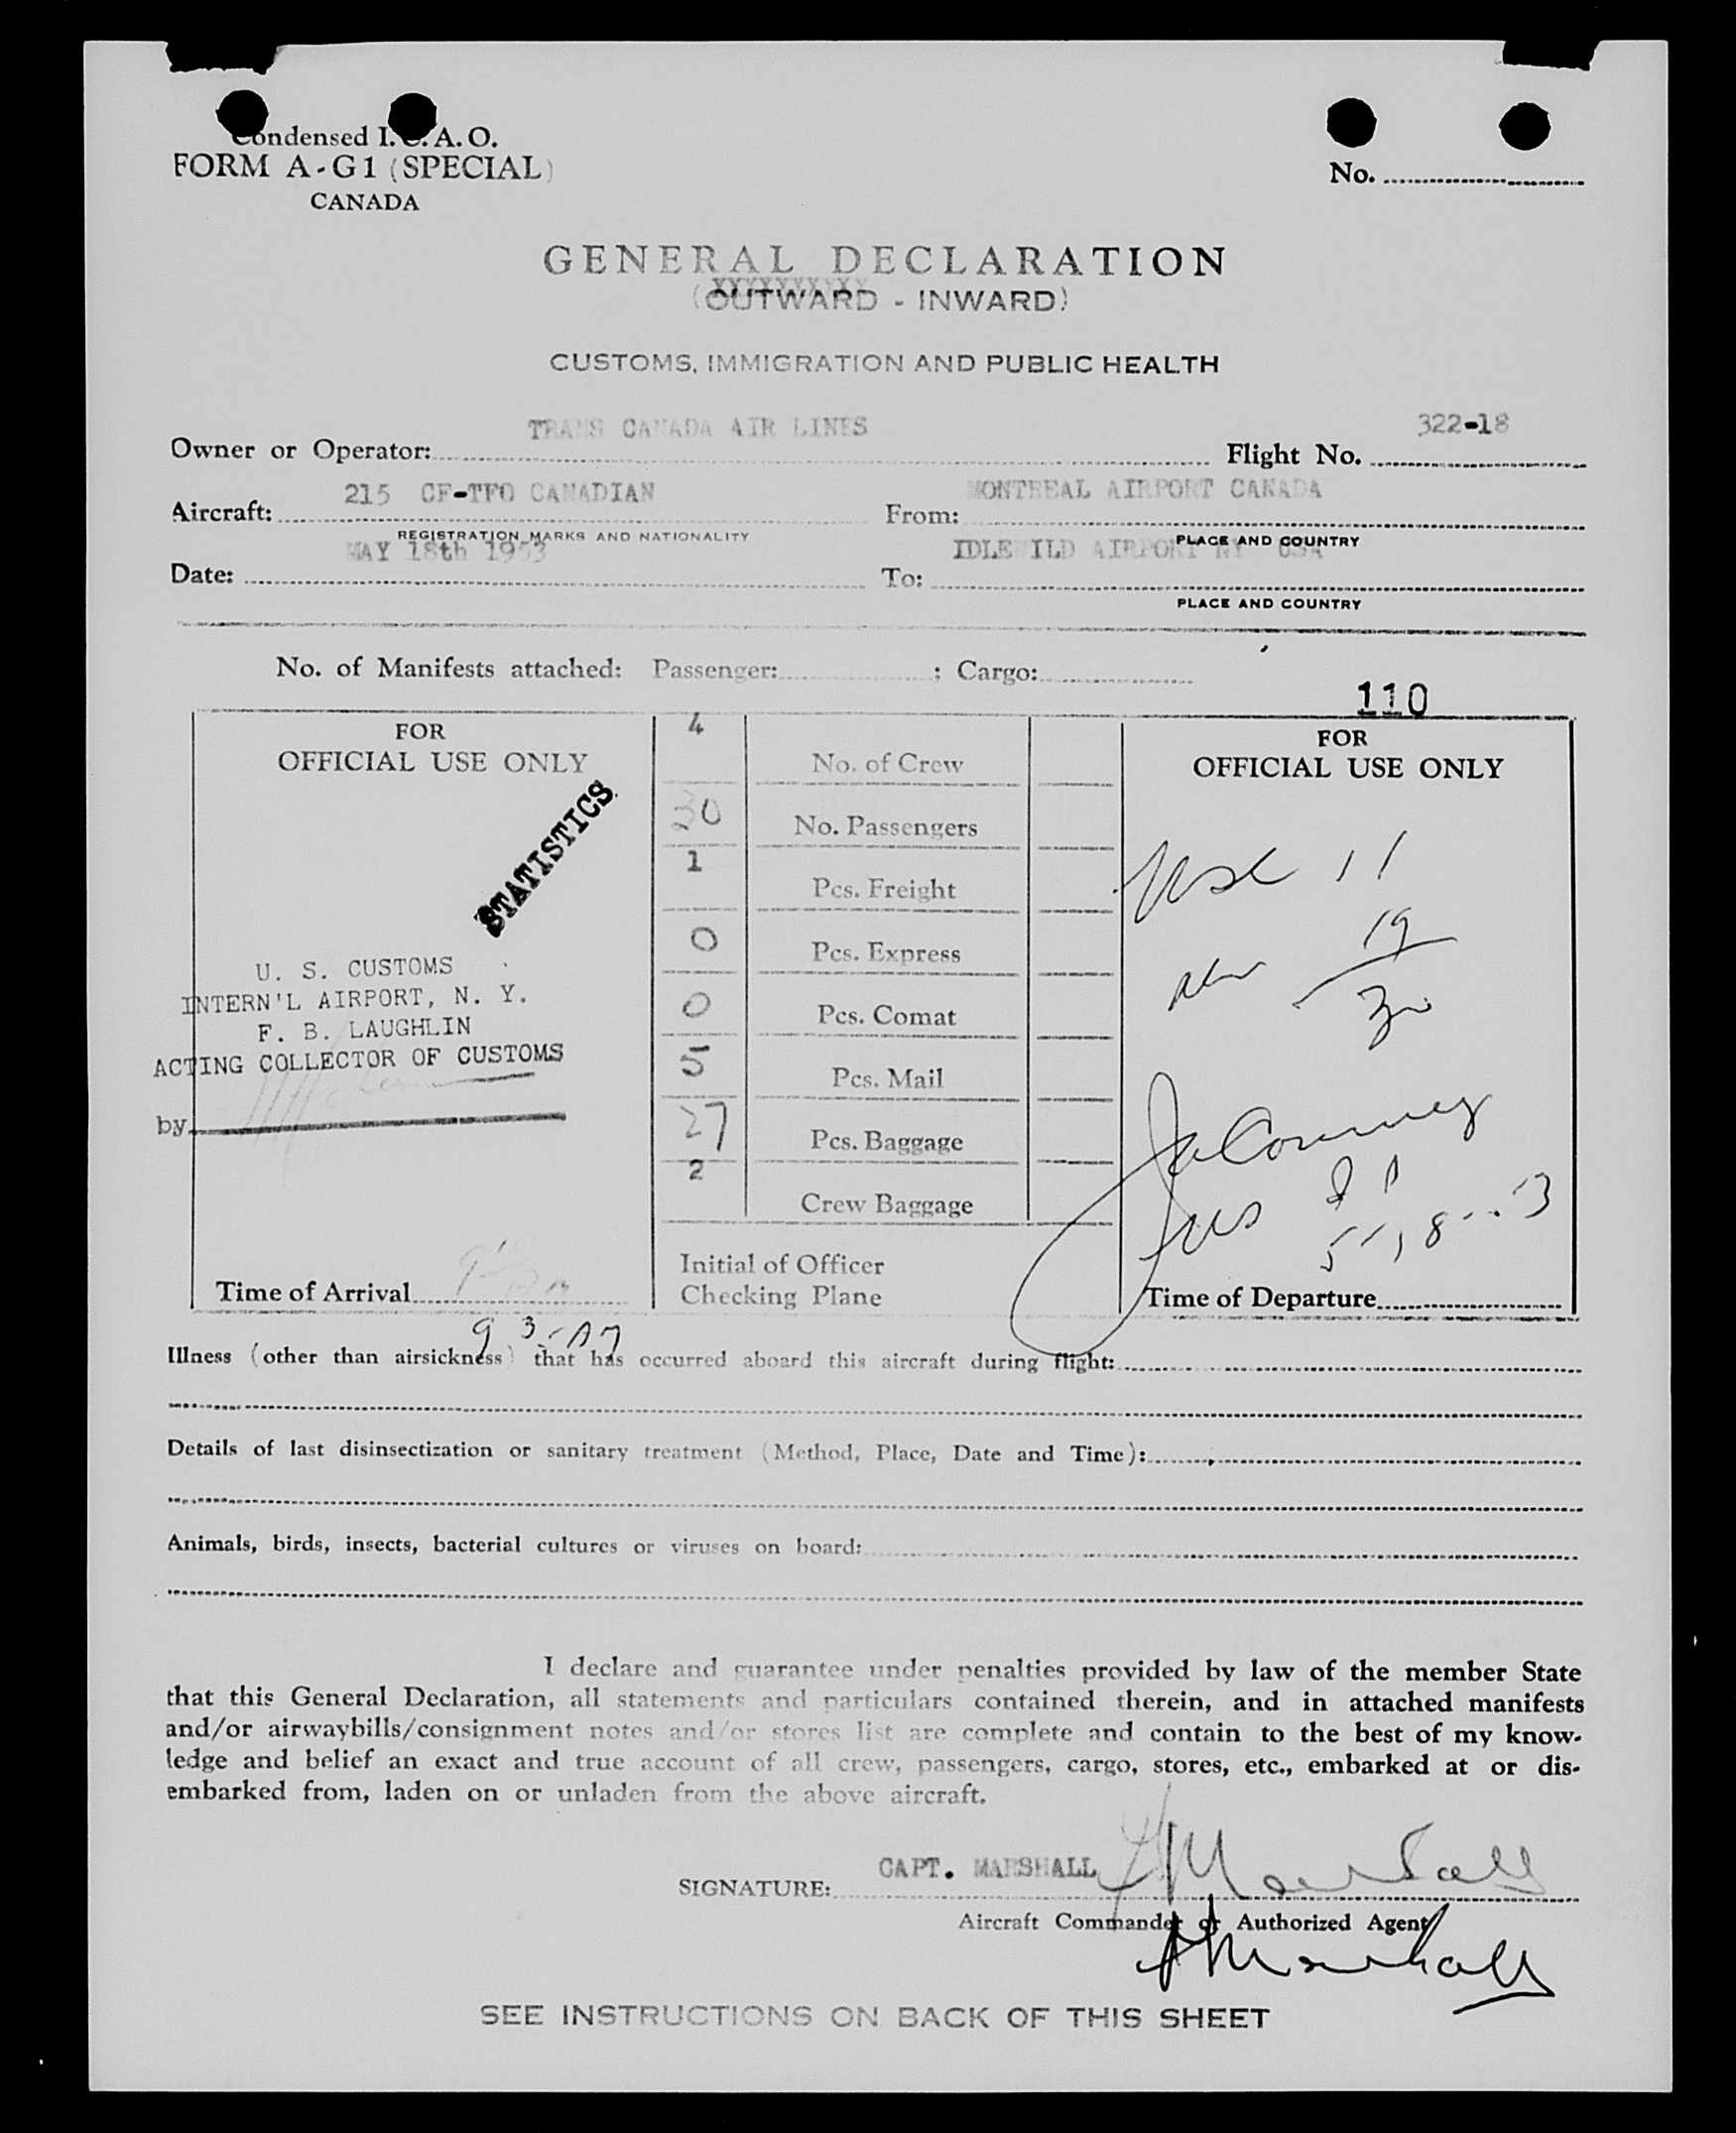 Condensed I.C.A.O.
FORM A-G1 (SPECIAL)
CANADA
No.
GENERAL DECLARATION
(OUTWARD - INWARD)
XXXXXXXXXX
CUSTOMS, IMMIGRATION AND PUBLIC HEALTH
Owner or Operator: TRANS CANADA AIR LINES Flight No. 322-18
Aircraft: 215 CF-TFO CANADIAN From: MONTREAL AIRPORT CANADA
REGISTRATION MARKS AND NATIONALITY PLACE AND COUNTRY
Date: MAY 18th 1953 To: IDLEWILD AIRPORT NY USA
PLACE AND COUNTRY
No. of Manifests attached: Passenger: ; Cargo:
110
FOR
OFFICIAL USE ONLY
STATISTICS
U. S. CUSTOMS
INTERN'L AIRPORT, N. Y.
F. B. LAUGHLIN
ACTING COLLECTOR OF CUSTOMS
by
Time of Arrival
4 No. of Crew
30 No. Passengers
1 Pcs. Freight
0 Pcs. Express
0 Pcs. Comat
5 Pcs. Mail
27 Pcs. Baggage
2 Crew Baggage
Initial of Officer
Checking Plane
FOR
OFFICIAL USE ONLY
11
19
30
Time of Departure
Illness (other than airsickness) that has occurred aboard this aircraft during flight:
Details of last disinsectization or sanitary treatment (Method, Place, Date and Time):
Animals, birds, insects, bacterial cultures or viruses on board:
I declare and guarantee under penalties provided by law of the member State
that this General Declaration, all statements and particulars contained therein, and in attached manifests
and/or airwaybills/consignment notes and/or stores list are complete and contain to the best of my know-
ledge and belief an exact and true account of all crew, passengers, cargo, stores, etc., embarked at or dis-
embarked from, laden on or unladen from the above aircraft.
SIGNATURE: CAPT. MARSHALL Marshall
Aircraft Commander or Authorized Agent
Marshall
SEE INSTRUCTIONS ON BACK OF THIS SHEET